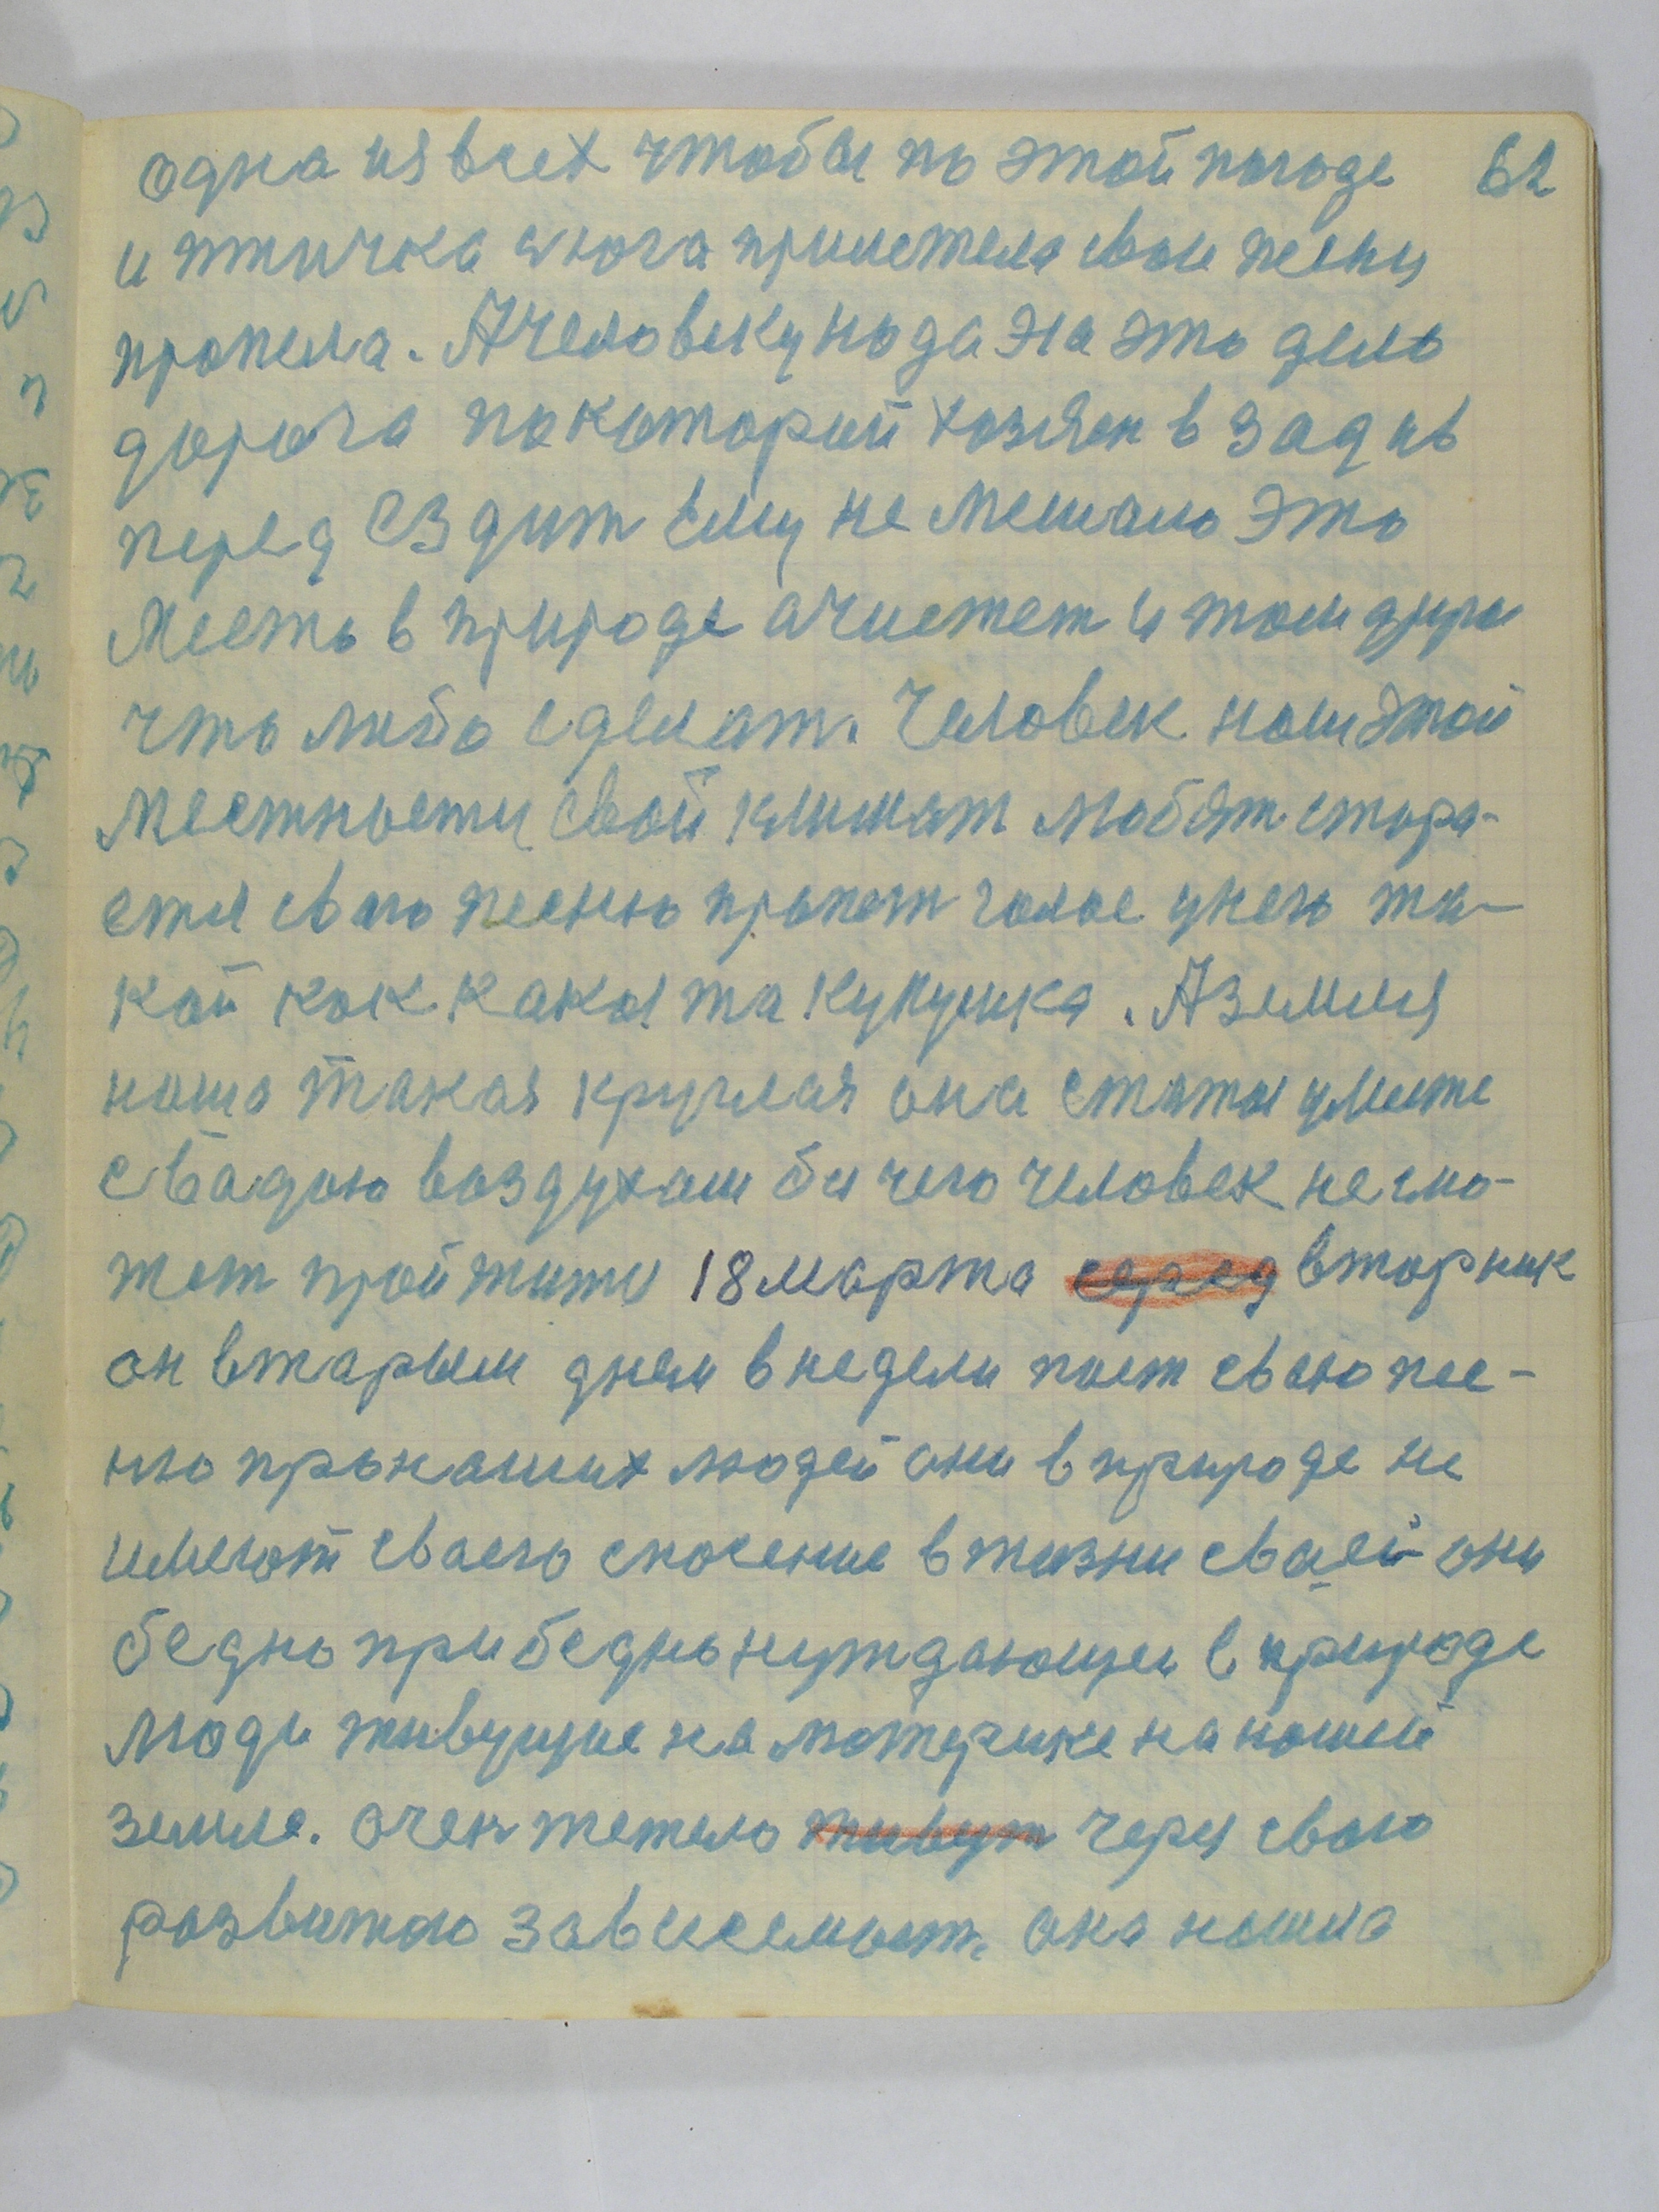 одна из всех чтобы по этой погоде 62
и птичка с юга прилетела свои песни
пропела. А человеку нада на это дело
дорога по который хозяен в зад ив
перед ездит ему не мешало это
место в природе ачистет и там
что либо сделат. Человек наш этой
местности свой климат любят стора-
ется свою песнню пропет голос унего та-
кой как какая та кукушка. А земля
наша такая круглая она
с вадою воздухам без чего человек не смо-
жет прой жити 18 марта серед вторник
он вторым днем в недели поет свою пес-
ню про наших людей они в природе не
имеют сваего спосение в жизни сваей они
бедно при бедно нуждающея в природе
люди живущие на материке на нашей
земле. Очен тежело живут через свою
развитою зависемост. она нашла